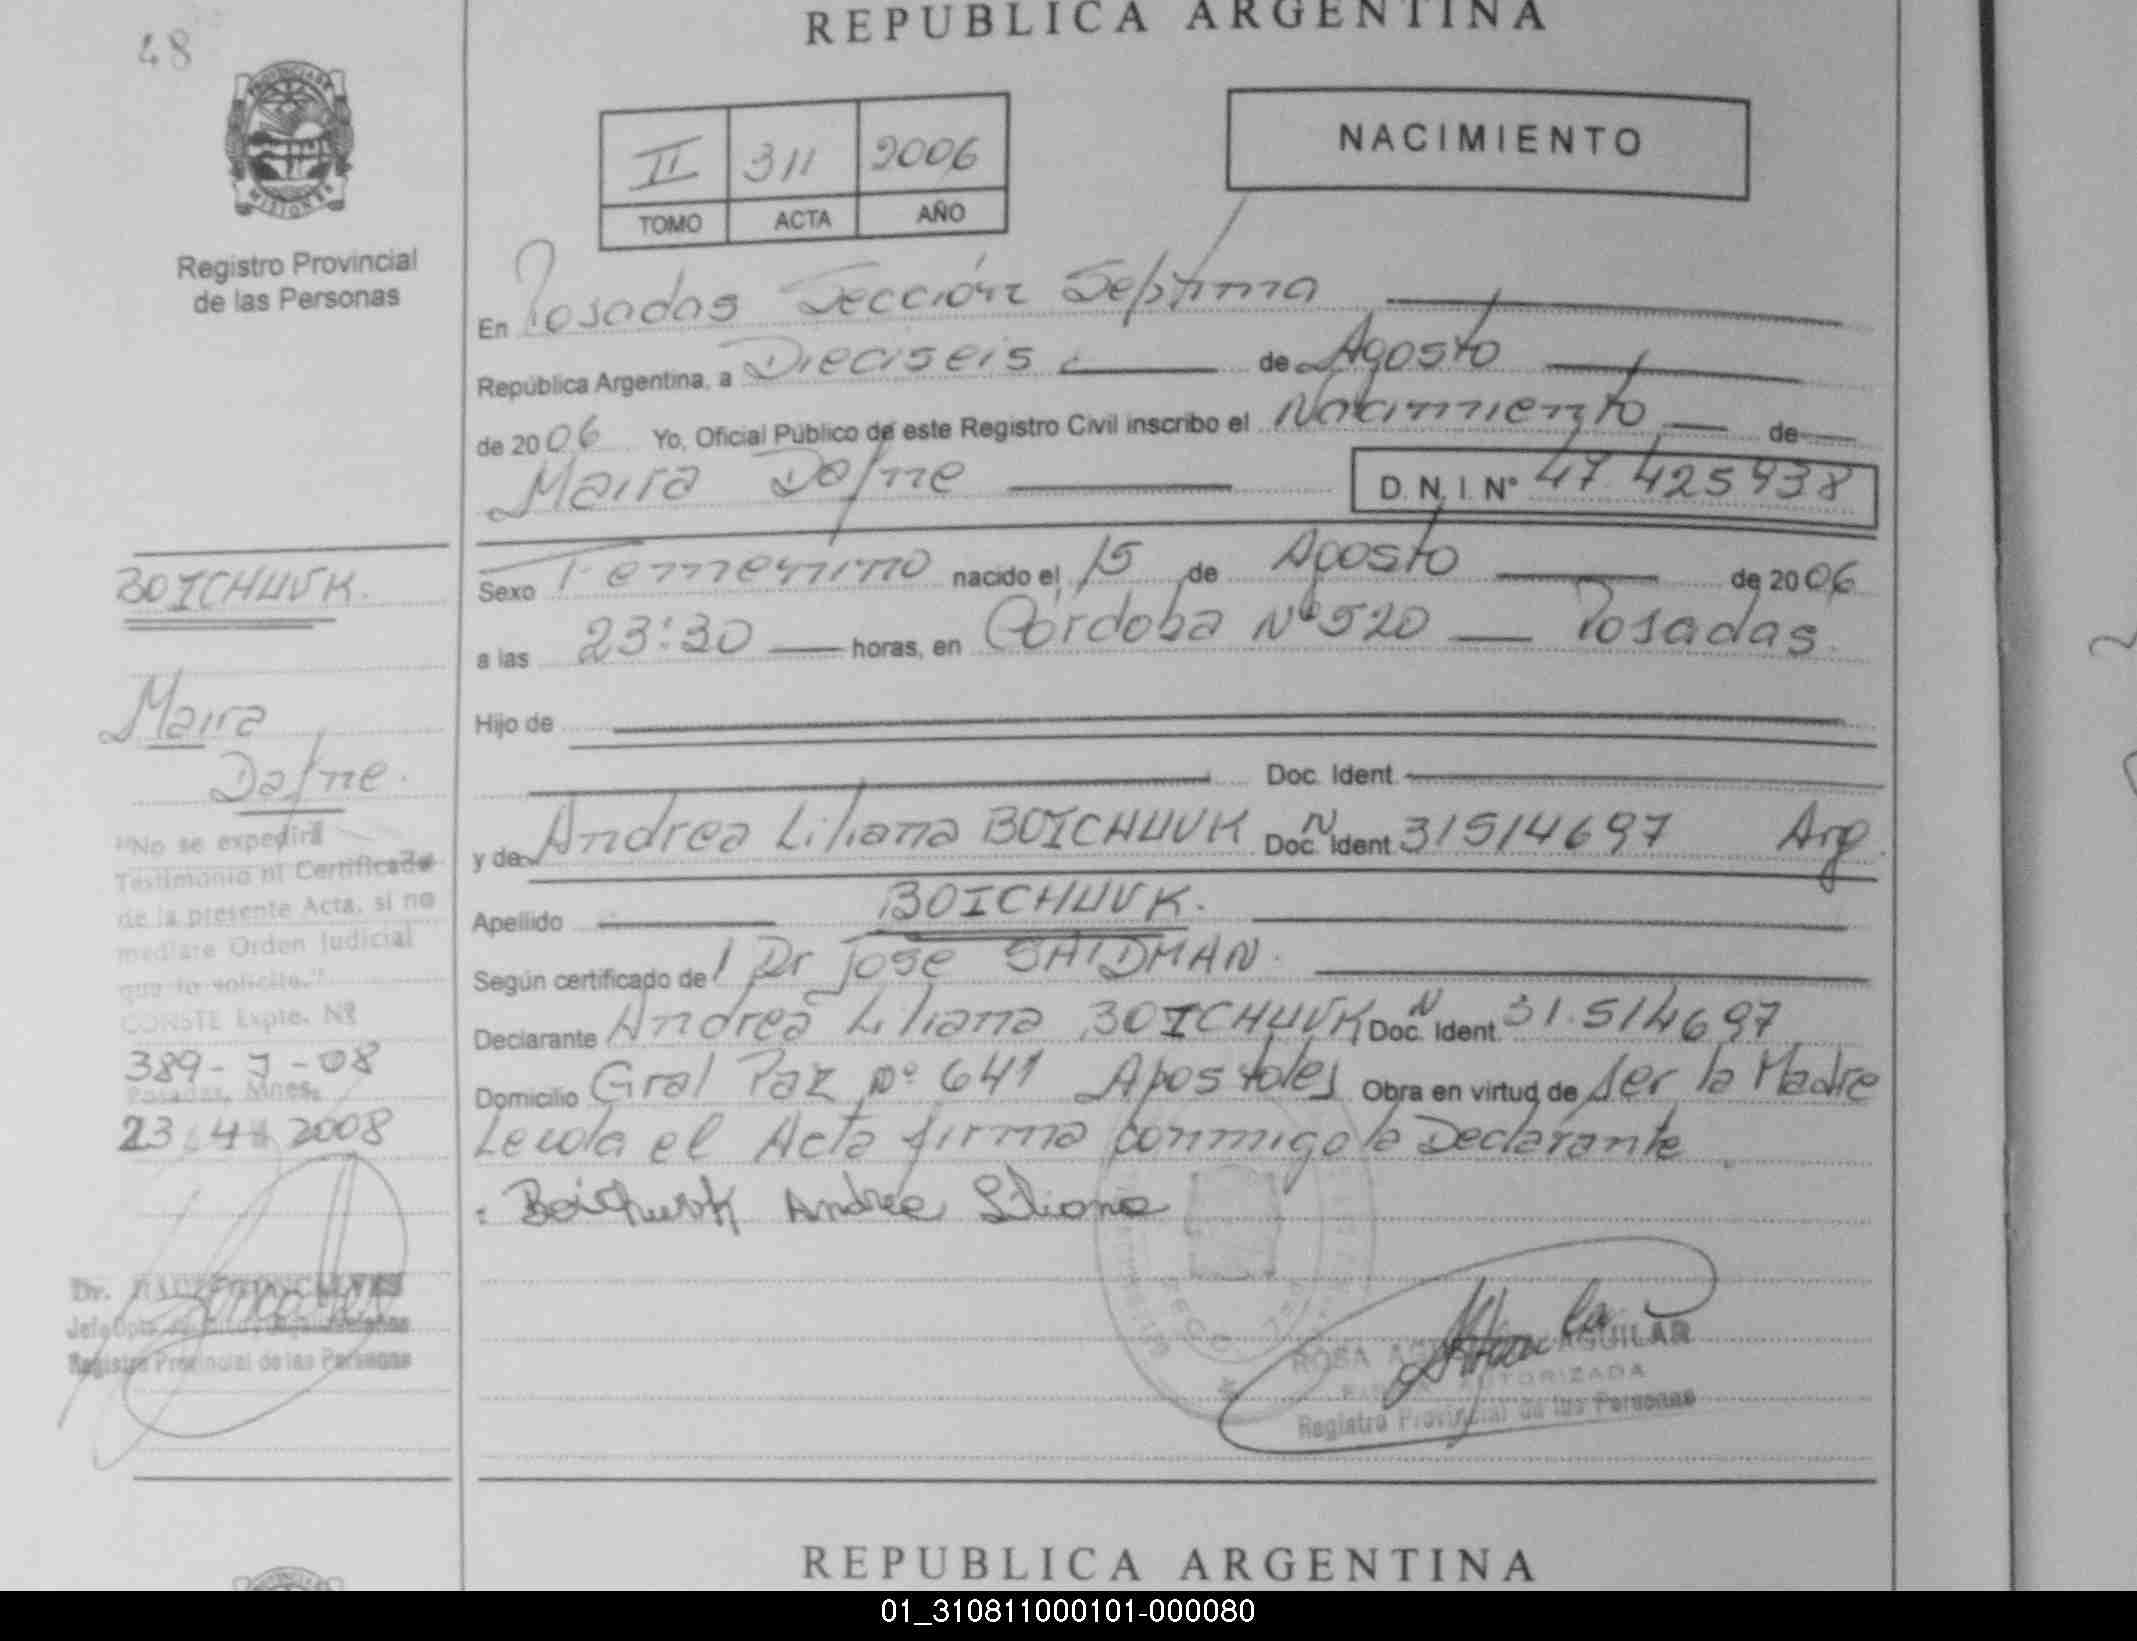 48
REPUBLICA ARGENTINA
PROVINCIA DE
MISIONES
Registro Provincial
de las Personas
II 311 2006
TOMO ACTA AÑO
NACIMIENTO
En Posadas Sección Septima
República Argentina, a Dieciseis de Agosto
de 2006 Yo, Oficial Público de este Registro Civil inscribo el Nacimiento de
Maira Dafne D.N.I. Nº 47 425938
Sexo Femenino nacido el 15 de Agosto de 2006
a las 23:30 horas, en Córdoba Nº 520 Posadas.
Hijo de
Doc. Ident.
y de Andrea Liliana BOICHUVK Doc. N Ident 31514697 Arg.
Apellido BOICHUVK.
Según certificado del Dr Jose SAIDMAN.
Declarante Andrea Liliana BOICHUVK Doc. N Ident. 31.514697
Domicilio Gral Paz nº 641 Apostoles Obra en virtud de ser la Madre
Leida el Acta firma conmigo la Declarante
Boichuvk Andrea Liliana
ROSA AGUILAR
FIRMA AUTORIZADA
Registro Provincial de las Personas
BOICHUVK.
Maira
Dafne.
"No se expedirá
Testimonio ni Certificado
de la presente Acta, si no
mediare Orden Judicial
que lo solicite."
CONSTE Expte. Nº
389-J-08
Posadas, Mnes.
23 4 2008
Dr.
Registro Provincial de las Personas
REPUBLICA ARGENTINA
01_310811000101-000080